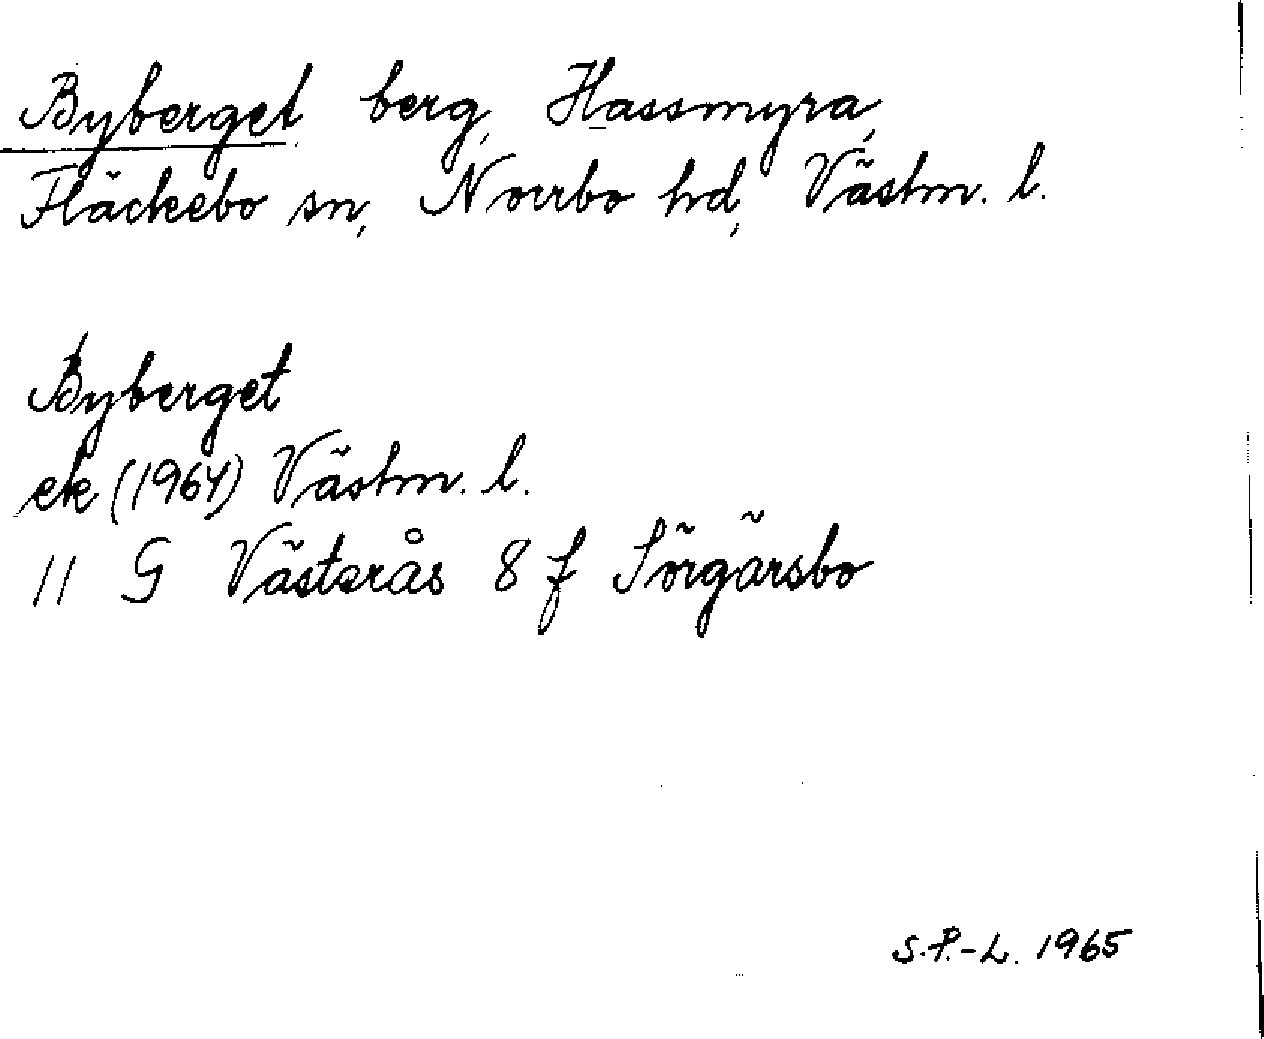 Byberget berg, Hassmyra,
Fläckebo sn, Norrbo hd, Västm. l.
Byberget
ek (1964) Västm. l.
11 G Västerås 8 f Sörgärsbo
S.P.-L. 1965